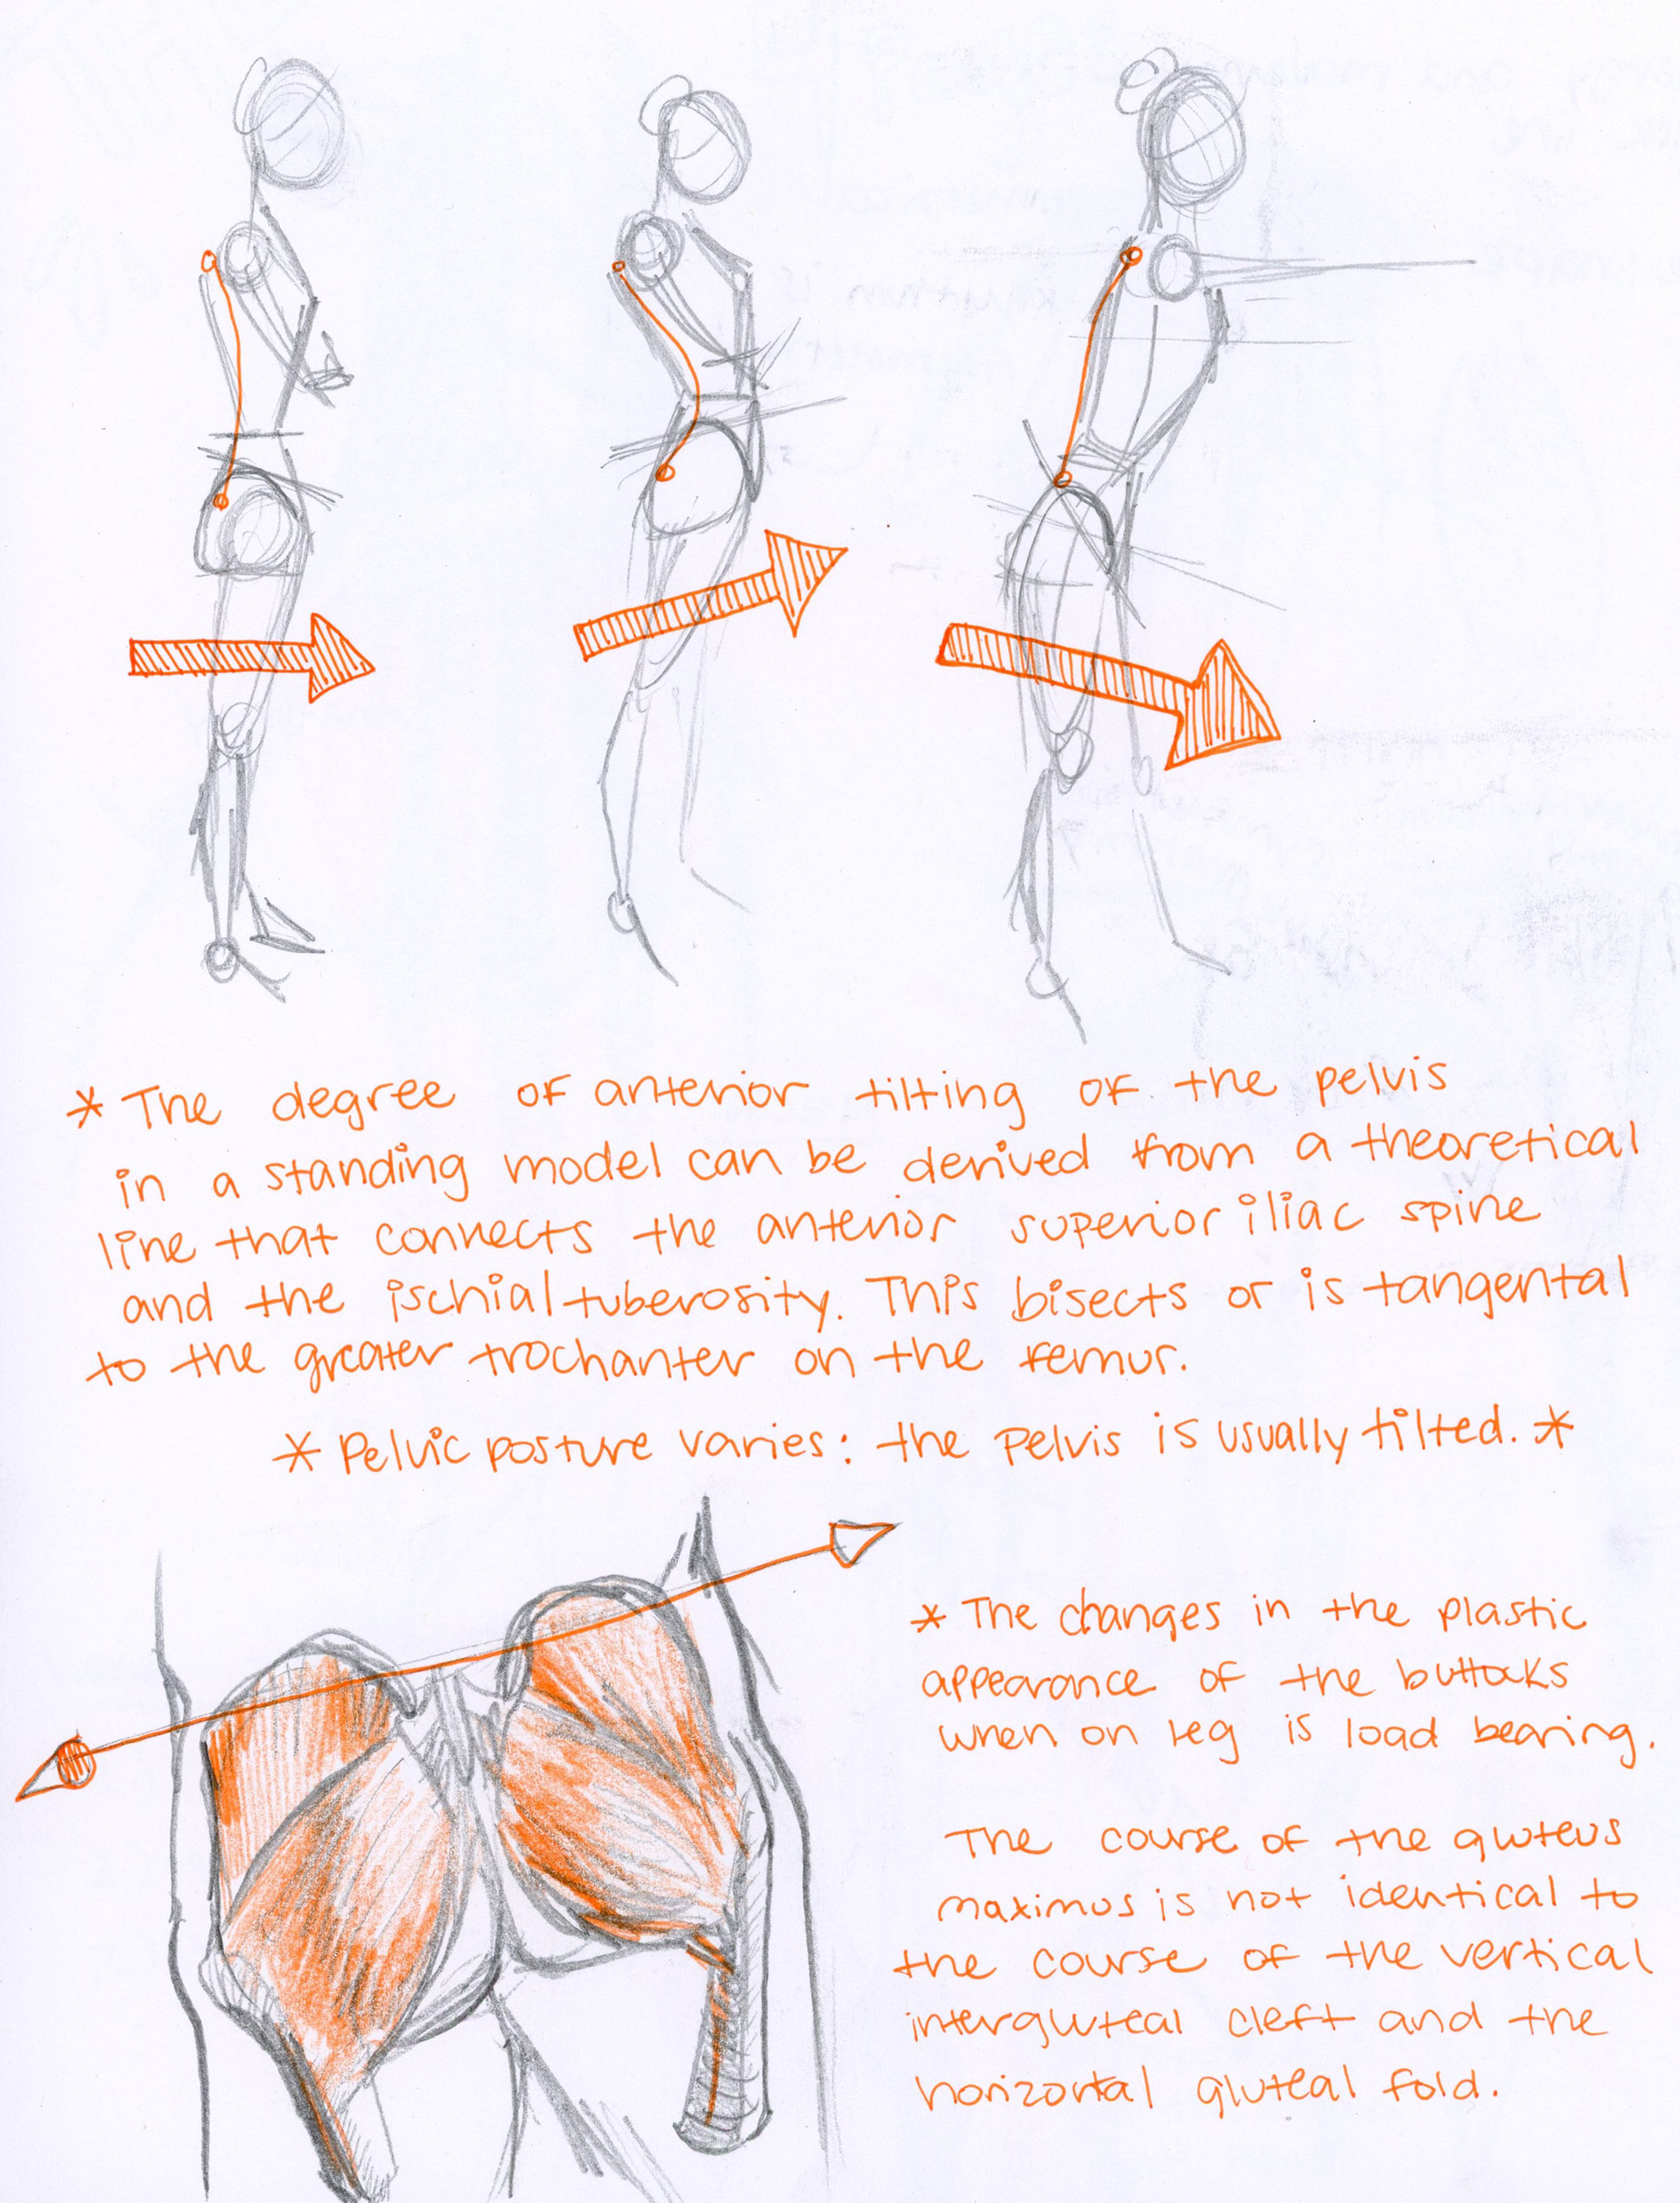 * The degree of anterior tilting of the pelvis
in a standing model can be derived from a theoretical
line that connects the anterior superior iliac spine
and the ischial tuberosity. This bisects or is tangental
to the greater trochanter on the femur.
* Pelvic posture varies: the pelvis is usually tilted. *
* The changes in the plastic
appearance of the buttocks
when on leg is load bearing.
The course of the gluteus
maximus is not identical to
the course of the vertical
intergluteal cleft and the
horizontal gluteal fold.